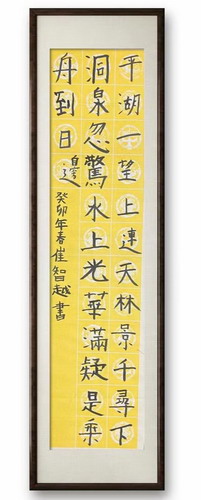 平湖一望上連天林景千尋下
洞泉忽驚水上光華滿疑是乘
舟到日邊
癸卯年春崔智越書